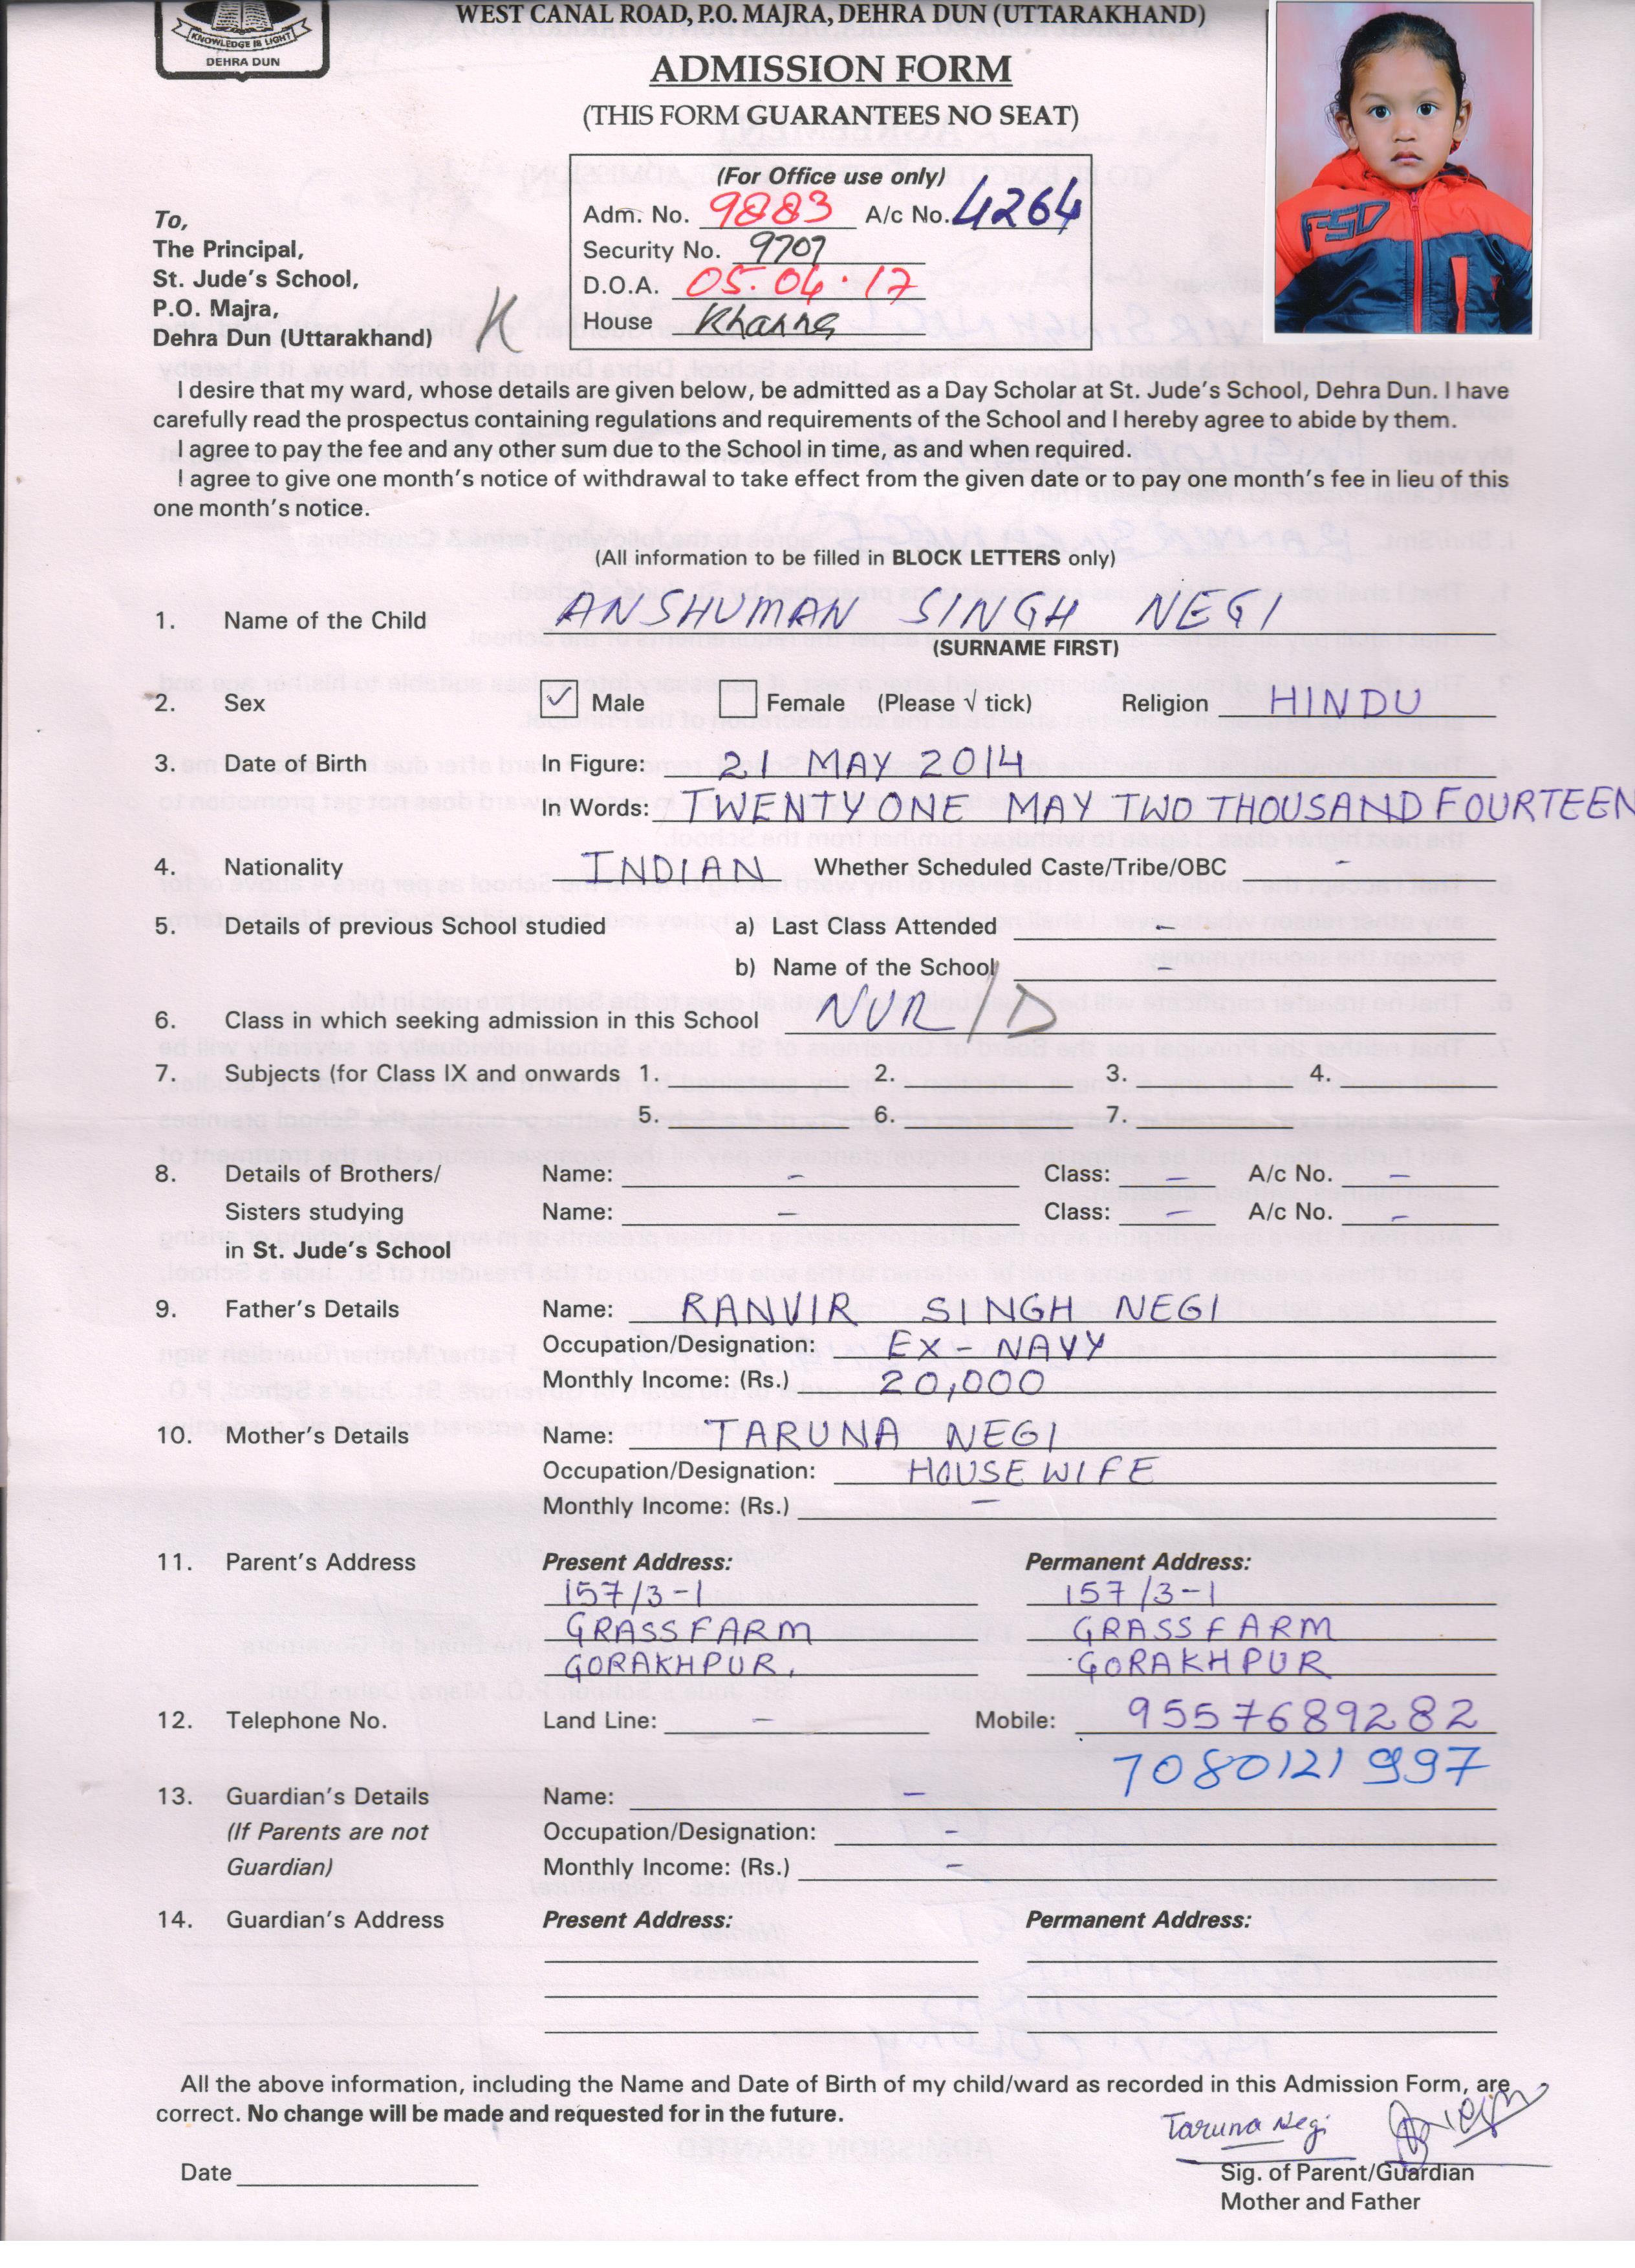 KNOWLEDGE IS LIGHT
DEHRA DUN
WEST CANAL ROAD, P.O. MAJRA, DEHRA DUN (UTTARAKHAND)
ADMISSION FORM
(THIS FORM GUARANTEES NO SEAT)
(For Office use only)
Adm. No. 9883 A/c No. 4264
Security No. 9707
D.O.A. 05.04.17
House Khanna
To,
The Principal,
St. Jude's School,
P.O. Majra,
Dehra Dun (Uttarakhand) K
FSD
I desire that my ward, whose details are given below, be admitted as a Day Scholar at St. Jude's School, Dehra Dun. I have
carefully read the prospectus containing regulations and requirements of the School and I hereby agree to abide by them.
I agree to pay the fee and any other sum due to the School in time, as and when required.
I agree to give one month's notice of withdrawal to take effect from the given date or to pay one month's fee in lieu of this
one month's notice.
(All information to be filled in BLOCK LETTERS only)
1. Name of the Child ANSHUMAN SINGH NEGI
(SURNAME FIRST)
2. Sex ✓ Male Female (Please √ tick) Religion HINDU
3. Date of Birth In Figure: 21 MAY 2014
In Words: TWENTY ONE MAY TWO THOUSAND FOURTEEN
4. Nationality INDIAN Whether Scheduled Caste/Tribe/OBC -
5. Details of previous School studied a) Last Class Attended -
b) Name of the School -
6. Class in which seeking admission in this School NUR/D
7. Subjects (for Class IX and onwards 1. 2. 3. 4.
5. 6. 7.
8. Details of Brothers/ Name: - Class: - A/c No. -
Sisters studying Name: - Class: - A/c No. -
in St. Jude's School
9. Father's Details Name: RANVIR SINGH NEGI
Occupation/Designation: EX-NAVY
Monthly Income: (Rs.) 20,000
10. Mother's Details Name: TARUNA NEGI
Occupation/Designation: HOUSE WIFE
Monthly Income: (Rs.) -
11. Parent's Address Present Address: Permanent Address:
157/3-1 157/3-1
GRASS FARM GRASS FARM
GORAKHPUR, GORAKHPUR
12. Telephone No. Land Line: - Mobile: 9557689282
7080121997
13. Guardian's Details Name: -
(If Parents are not Occupation/Designation: -
Guardian) Monthly Income: (Rs.) -
14. Guardian's Address Present Address: Permanent Address:
All the above information, including the Name and Date of Birth of my child/ward as recorded in this Admission Form, are
correct. No change will be made and requested for in the future.
Taruna Negi
Date Sig. of Parent/Guardian
Mother and Father